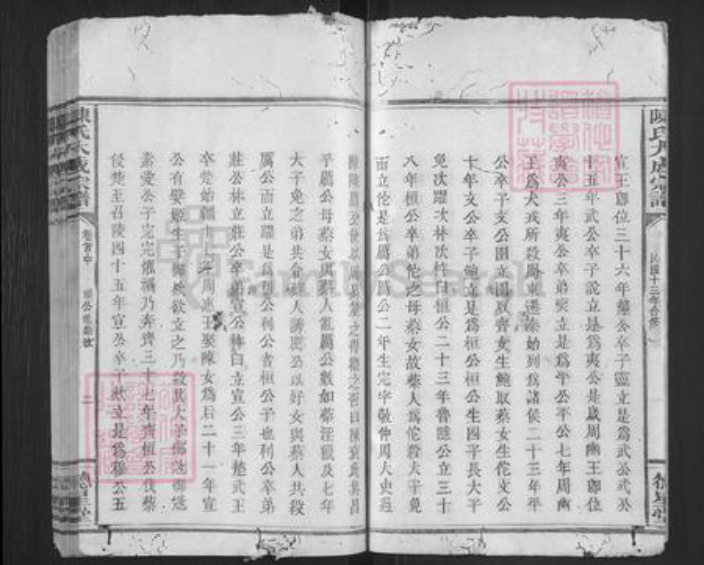 陳氏大成宗譜
民國十三年合修
德星堂
宣王即位三十六年釐公卒子靈立是為武公武公
十五年武公卒子說立是為夷公是歲周幽王即位
夷公三年夷公卒弟燮立是為平公平公七年周幽
王為犬戎所殺周東遷秦始列為諸侯二十三年平
公卒子文公圉立圉取蔡女生鮑取蔡女生佗文公
十年文公卒子鮑立是為桓公桓公生四子長大子
免次躍次林次杵臼桓公二十三年魯隱公立三十
八年桓公卒弟佗之母蔡女故蔡人為佗殺大子免
而立佗是為厲公厲公二年生完字敬仲周大史過
平厲公母蔡女與蔡人亂厲公數如蔡淫厲及七年
大子免之弟共令蔡人誘厲公以好女與蔡人共殺
厲公而立躍是為利公利公者桓公子也利公卒弟
莊公林立莊公卒弟宣公杵臼立宣公三年楚武王
卒楚始疆十 年周惠王娶陳女為后二十一年宣
公有嬖姬生子 欲立之乃殺其大子
素愛公子完完懼禍乃奔齊三十七年齊桓公伐蔡
侵楚至召陵四十五年宣公卒子款立是為穆公五
陳氏大成宗譜
卷首中
二
德星堂
FamilySearch